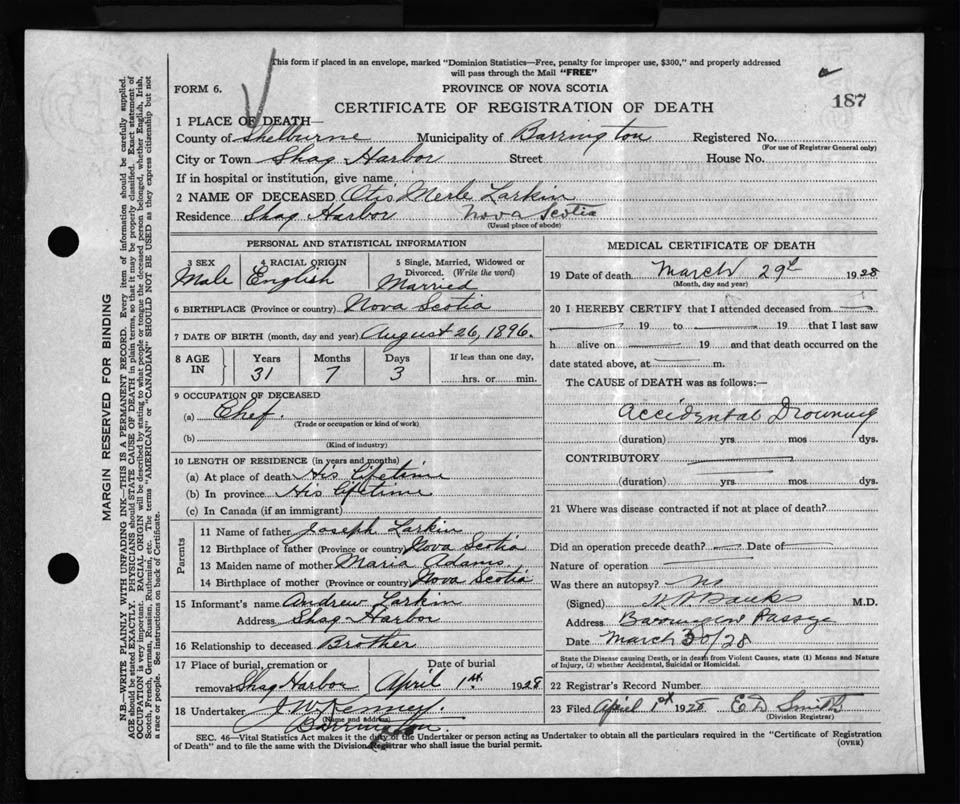 This form if placed in an envelope, marked "Dominion Statistics—Free, penalty for improper use, $300," and properly addressed
will pass through the Mail "FREE"
FORM 6.
PROVINCE OF NOVA SCOTIA
187
CERTIFICATE OF REGISTRATION OF DEATH
1 PLACE OF DEATH—
County of Shelburne Municipality of Barrington Registered No.
(For use of Registrar General only)
City or Town Shag Harbor Street House No.
If in hospital or institution, give name
2 NAME OF DECEASED Otis Merle Larkin
Residence Shag Harbor Nova Scotia
(Usual place of abode)
PERSONAL AND STATISTICAL INFORMATION
3 SEX 4 RACIAL ORIGIN 5 Single, Married, Widowed or Divorced. (Write the word)
Male English Married
6 BIRTHPLACE (Province or country) Nova Scotia
7 DATE OF BIRTH (month, day and year) August 26, 1896.
8 AGE IN Years Months Days If less than one day,
31 7 3 hrs. or min.
9 OCCUPATION OF DECEASED
(a) Chef.
(Trade or occupation or kind of work)
(b)
(Kind of industry)
10 LENGTH OF RESIDENCE (in years and months)
(a) At place of death His lifetime
(b) In province His lifetime
(c) In Canada (if an immigrant)
Parents
11 Name of father Joseph Larkin
12 Birthplace of father (Province or country) Nova Scotia
13 Maiden name of mother Maria Adams
14 Birthplace of mother (Province or country) Nova Scotia
15 Informant's name Andrew Larkin
Address Shag Harbor
16 Relationship to deceased Brother
17 Place of burial, cremation or Date of burial
removal Shag Harbor April 1st 1928
18 Undertaker J. W. Kenney.
(Name and address)
Barrington.
MEDICAL CERTIFICATE OF DEATH
19 Date of death March 29th 1928
(Month, day and year)
20 I HEREBY CERTIFY that I attended deceased from
19 to 19 that I last saw
h alive on 19 and that death occurred on the
date stated above, at m.
The CAUSE of DEATH was as follows:—
Accidental Drowning
(duration) yrs. mos dys.
CONTRIBUTORY
(duration) yrs. mos. dys.
21 Where was disease contracted if not at place of death?
Did an operation precede death? Date of
Nature of operation
Was there an autopsy? No
(Signed) Banks M.D.
Address Barrington Passage
Date March 30/28
State the Disease causing Death, or in death from Violent Causes, state (1) Means and Nature
of Injury, (2) whether Accidental, Suicidal or Homicidal.
22 Registrar's Record Number
23 Filed April 1st 1928 E D Smith
(Division Registrar)
SEC. 46—Vital Statistics Act makes it the duty of the Undertaker or person acting as Undertaker to obtain all the particulars required in the "Certificate of Registration
of Death" and to file the same with the Division Registrar who shall issue the burial permit.
(OVER)
MARGIN RESERVED FOR BINDING
N.B.—WRITE PLAINLY WITH UNFADING INK—THIS IS A PERMANENT RECORD. Every item of information should be carefully supplied.
AGE should be stated EXACTLY. PHYSICIANS should STATE CAUSE OF DEATH in plain terms, so that it may be properly classified. Exact statement of
OCCUPATION is very important. RACIAL ORIGIN will be described by stating to what people or tongue the deceased person belonged, whether English, Irish,
Scotch, French, German, Russian, Ruthenian, etc. The terms "AMERICAN" or "CANADIAN" SHOULD NOT BE USED as they express citizenship but not
a race or people. See instructions on back of Certificate.